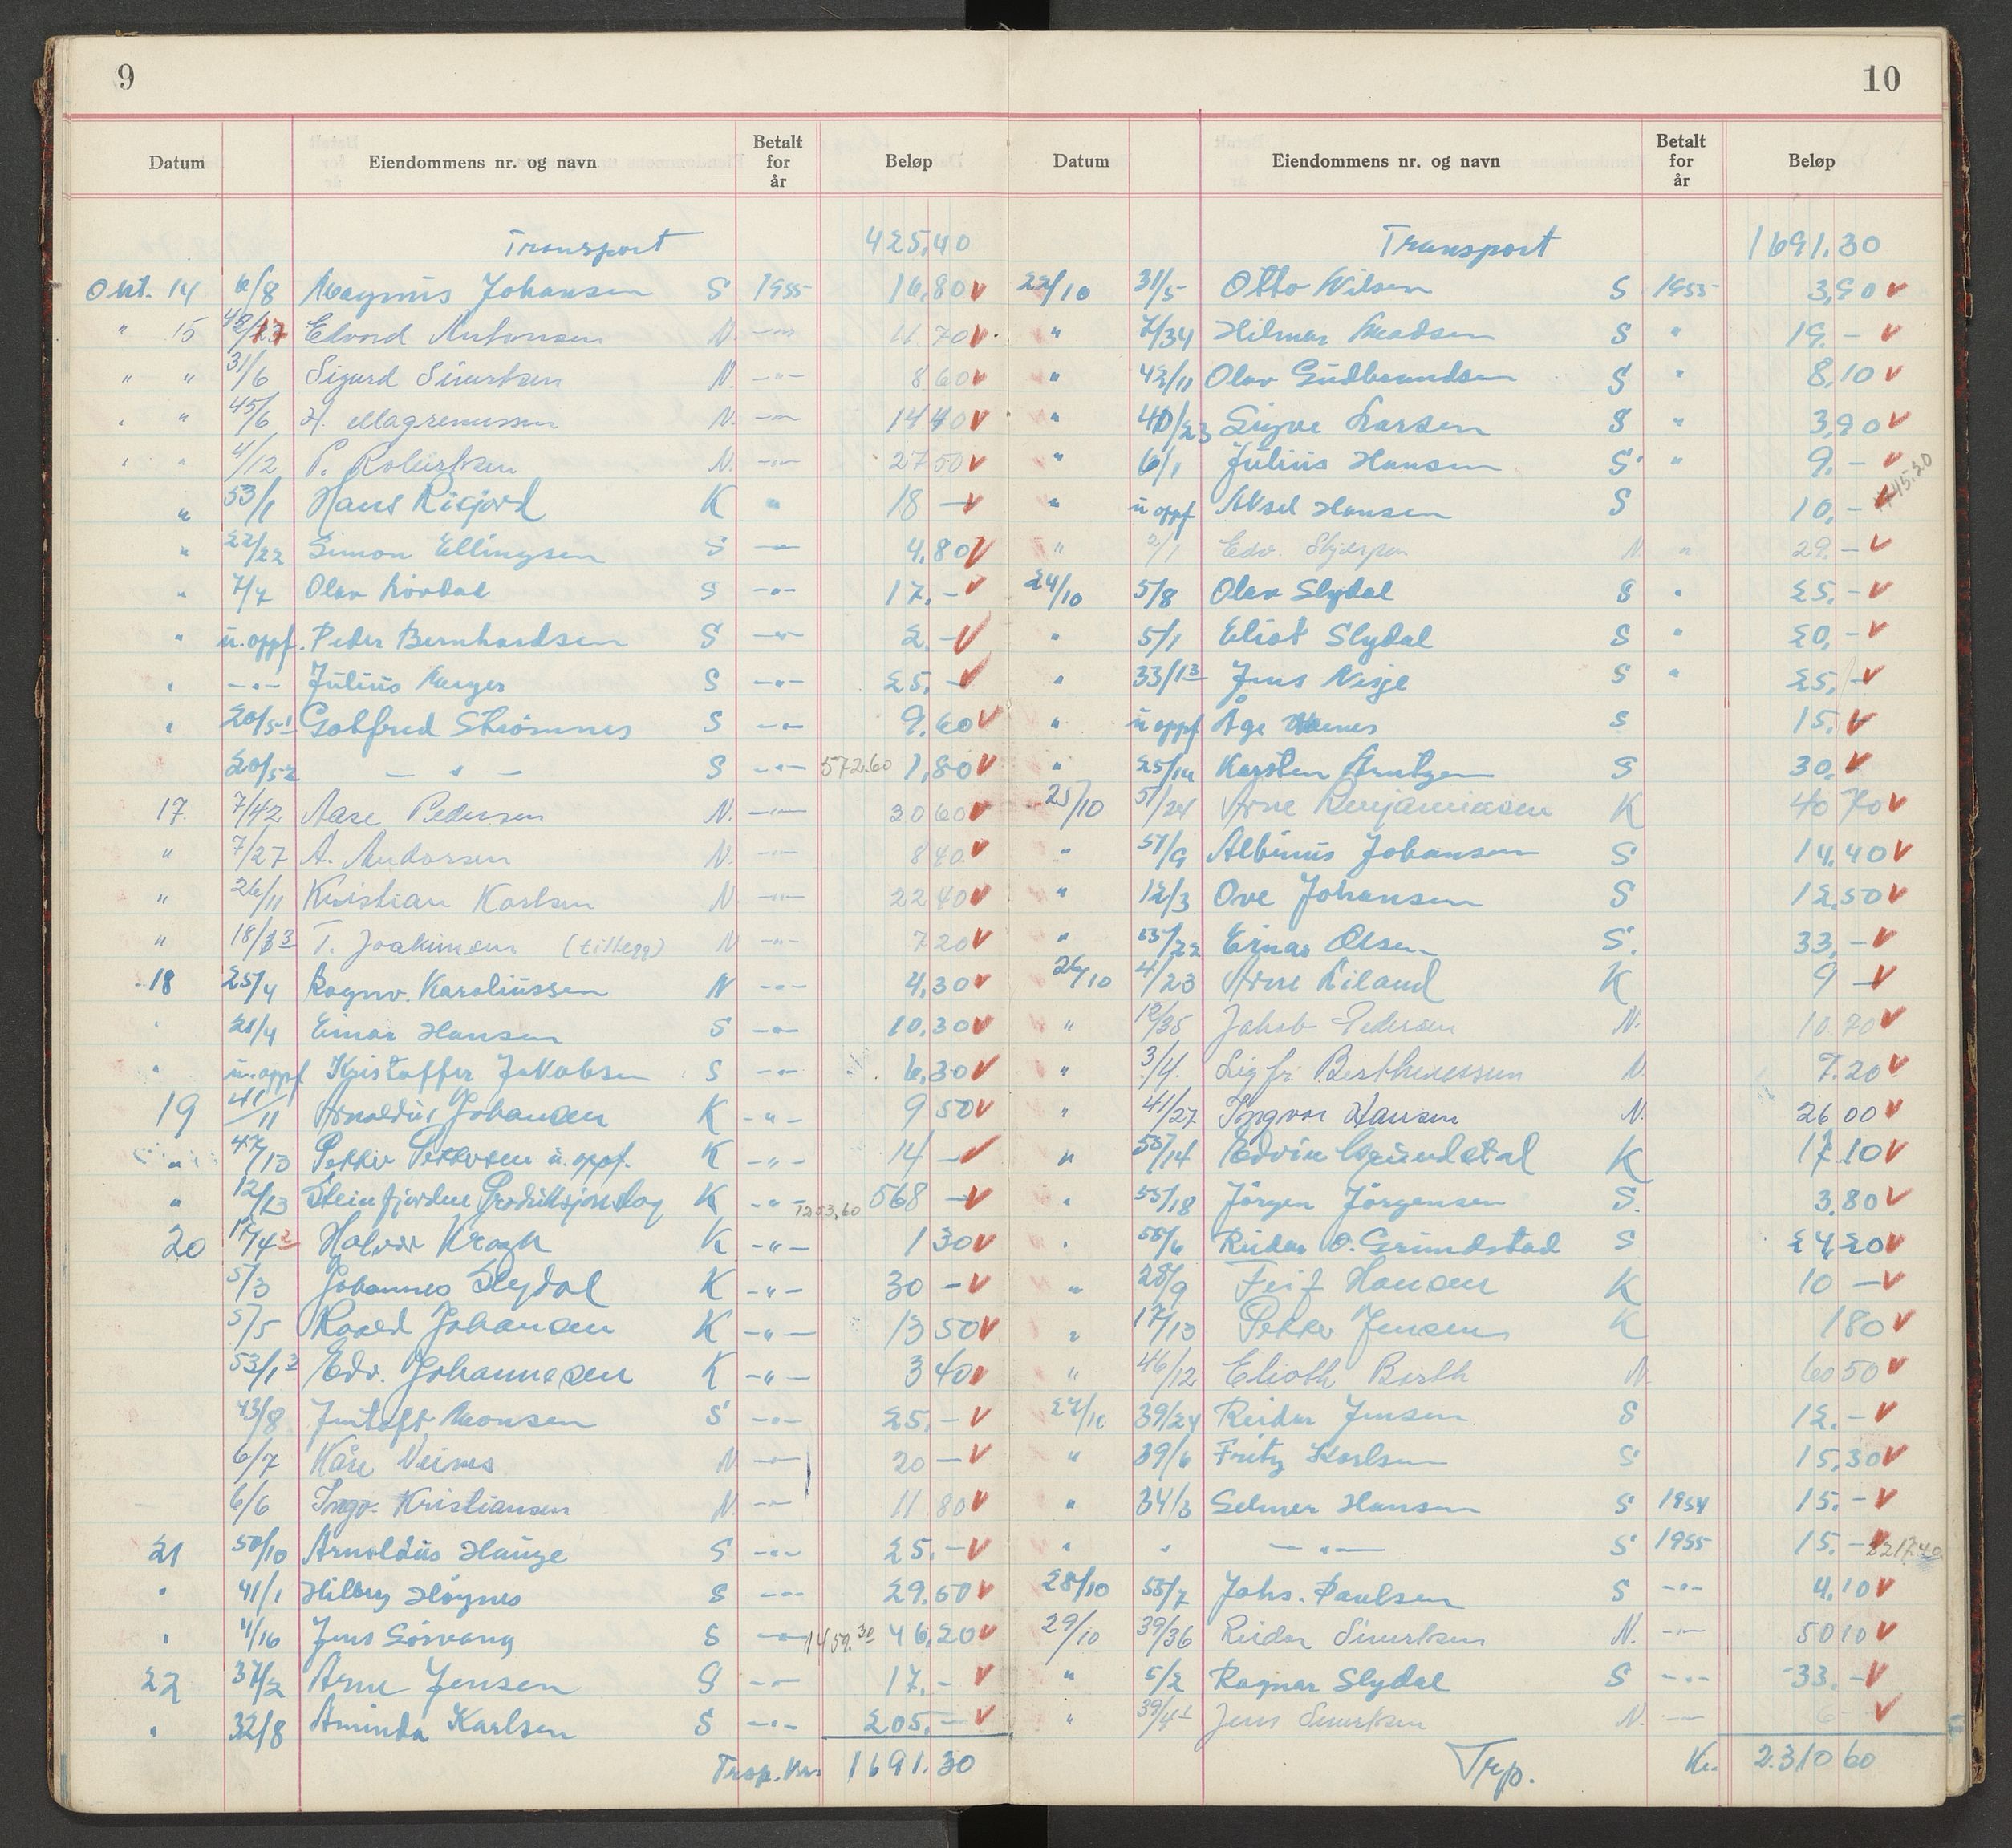 9
Datum Eiendommens nr. og navn Betalt for år Beløp
Transport 425,40
Okt. 14 6/8 Magnus Johansen S 1955 16,80 v
" 15 Edvard Antonsen N. -"- 11 70 v
" " 31/6 Sigurd Sivertsen N. -"- 8 60 v
" " 45/6 H. Magnussen N. -"- 14 40 v
" " 4/12 P. N. -"- 27 50 v
" 53/1 Hans Risjord K " 18 - v
" 22/22 Simon Ellingsen S -"- 4,80 v
" 7/7 Olav Lovdal S -"- 17,- v
" u.oppf. Peder Bernhardsen S -"- 2,- v
" -"- Julius S -"- 25,- v
" 20/51 Gotfred Strømnes S -"- 9,60 v
20/52 - " - S -"- 572.60 1,80 v
17. 7/42 Aase Pedersen N. -"- 30 60 v
" 7/27 A. Andorsen N. -"- 8 40 v
" 26/11 Kristian Karlsen N -"- 22 40 v
" 18/33 T. Joakimsen (tillegg) N -"- 7 20 v
18 25/4 Ragnv. Karoliussen N -"- 4,30 v
" 21/4 Einar Hansen S -"- 10,30 v
" u.oppf Kristoffer Jakobsen S -"- 6,30 v
19 41/11 Arnoldus Johansen K -"- 9 50 v
" 47/13 Petter Pettersen u.oppf. K -"- 14 - v
" 12/13 Steinfjorden Produksjonslag K -"- 1253,60 568 - v
20 17/42 Halvor Kragh K -"- 1 30 v
5/3 Johannes Slydal K -"- 30 - v
5/5 Roald Johansen K -"- 13 50 v
53/13 Edv. Johannesen K -"- 3 40 v
43/8 Monsen S -"- 25,- v
6/7 Kåre Veines N -"- 20 - v
6/6 Ingv. Kristiansen N. -"- 11 80 v
21 50/10 Arnoldus Hauge S -"- 25,- v
" 41/1 Hilberg Høynes S -"- 29,60 v
" 4/16 Jens Sørvang S -"- 1459.30 46,20 v
22 37/2 Arne Jensen S -"- 17,- v
" 32/8 Aminda Karlsen S -"- 205,- v
Trsp. Kr. 1691.30
10
Datum Eiendommens nr. og navn Betalt for år Beløp
Transport 1691.30
22/10 31/5 Otto Nilsen S 1955 3,90 v
" 7/34 Hilmar Madsen S " 19,- v
" 42/11 Olav Gudbrandsen S " 8,10 v
" 40/23 Sigve Larsen S " 3,90 v
" 6/1 Julius Hansen S " 9,- v
" u oppf Aksel Hansen S 10,- v
" 2/1 Edv. N. " 29,- v
24/10 5/8 Olav Slydal S " 25,- v
" 5/1 Eliot Slydal S " 20,- v
" 33/13 Jens Nisje S " 25,- v
" u oppf Åge S 15,- v
" 25/14 Karsten Arntzen S 30,- v
25/10 51/24 Arne Benjaminsen K 40 70 v
" 51/9 Albinus Johansen S 14,40 v
" 12/3 Ove Johansen S 12,50 v
" 55/22 Einar Olsen S. 33,- v
26/10 4/23 Arne Eiland K 9 - v
" 12/35 Jakob Pedersen N. 10.70 v
" 3/4. Sigfr. Berthinussen N. 7.20 v
" 41/27 Ingvar Hansen N. 26 00 v
" 55/14 Edvin Grundstad K 17.10 v
" 55/18 Jörgen Jörgensen S. 3,80 v
" 55/6 Reidar O. Grundstad S 24,20 v
" 28/9 Leif Hansen K 10 - v
" 17/13 Petter Jensen K 1 80 v
" 46/12 Elioth Barth N 60 50 v
27/10 39/24 Reidar Jensen S 12,- v
" 39/6 Fritz Karlsen S 15,30 v
" 34/3 Selmer Hansen S 1954 15,- v
" " - " - S 1955 15,- v 2217.40
28/10 55/7 Johs. Paulsen S -"- 4,10 v
29/10 39/36 Reidar Sivertsen N. -"- 50 10 v
" 5/2 Ragnar Slydal S -"- 33,- v
" Jens Sivertsen N. -"- 6 - v
Trp. Kr. 2.310 60